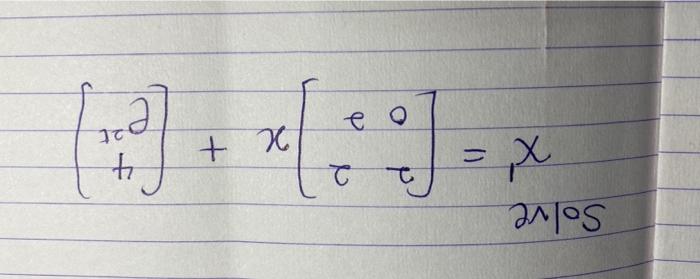 Solve
x' = [2 2
0 2] x + [4
e^2t]